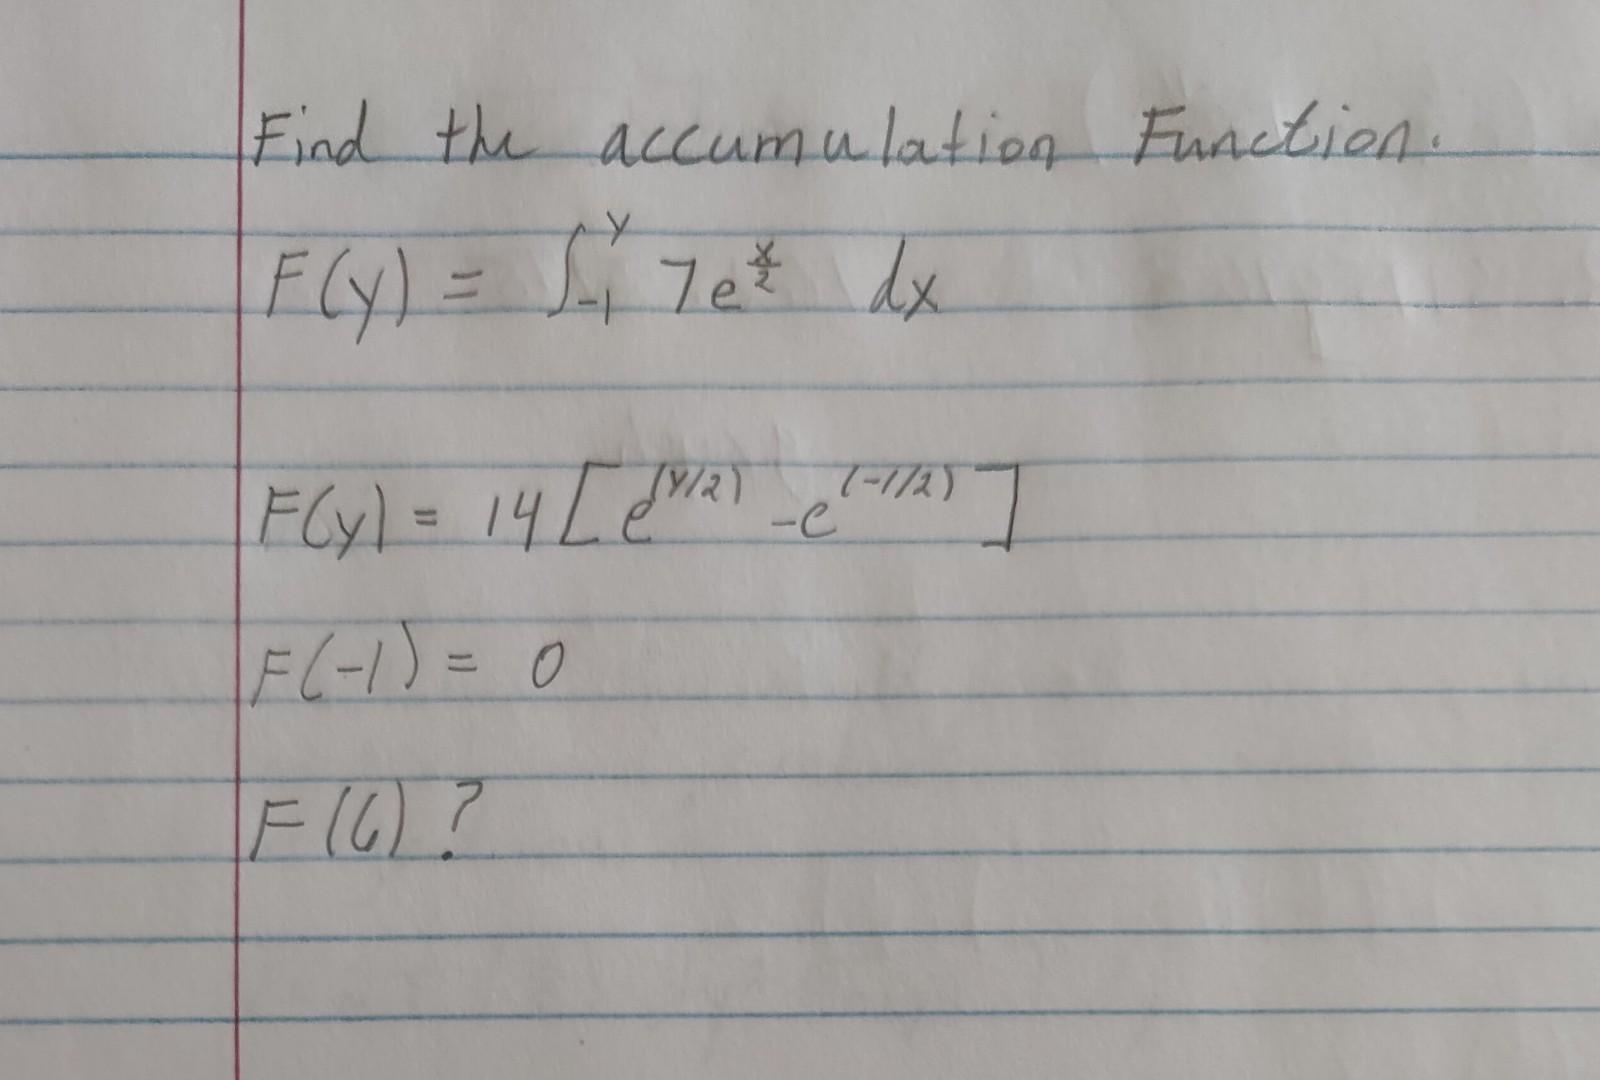 Find the accumulation Function.
F(y) = ∫₋₁^y 7e^(x/2) dx
F(y) = 14[e^(y/2) - e^(-1/2)]
F(-1) = 0
F(6)?